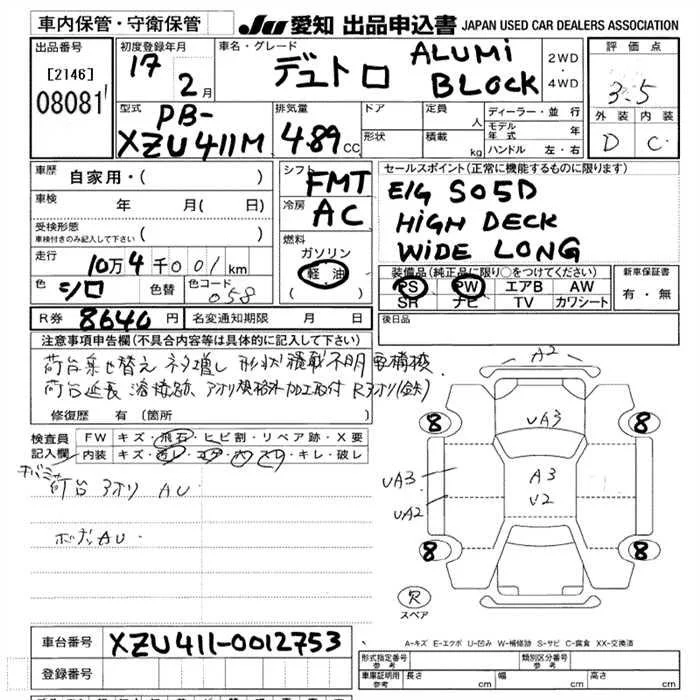 車内保管・守衛保管
JU 愛知 出品申込書 JAPAN USED CAR DEALERS ASSOCIATION
出品番号
[2146]
08081
初度登録年月
17
2月
車名・グレード
デュトロ
ALUMi
BLOCK
2WD
・
4WD
評価点
3.5
外装 内装
D C
型式
PB-
XZU411M
排気量
4.89CC
ドア
形状
定員
人
積載
kg
ディーラー・並行
モデル年式 年
ハンドル 左・右
車歴 自家用・( )
車検 年 月( 日)
受検形態
車検付きのみ記入して下さい ( )
走行 10万4千001km
色 シロ 色替 色コード 058
シフト FMT
冷房 AC
燃料
ガソリン
軽油
( )
セールスポイント(正常に機能するものに限ります)
E/G S05D
HiGH DECK
WiDE LONG
装備品(純正品に限り○をつけてください)
PS PW エアB AW
SR ナビ TV カワシート
新車保証書
有・無
R券 8640円 名変通知期限 月 日
後日品
注意事項申告欄(不具合内容等は具体的に記入して下さい)
荷台乗せ替え
荷台延長
修復歴 有(箇所 )
検査員
記入欄
FW キズ・飛石・ヒビ割・リペア跡・X要
内装 キズ・汚レ・コゲ・穴・スレ・キレ・破レ
荷台 アオリ AU
AU.
A2
UA3
A3
U2
UA3
UA2
8
8
8
8
欠
スペア
A-キズ E-エクボ U-凹み W-補修跡 S-サビ C-腐食 XX-交換済
車台番号 XZU411-0012753
登録番号
形式指定番号
参考
類別区分番号
参考
車庫証明用
参考
長さ cm 幅 cm 高さ cm